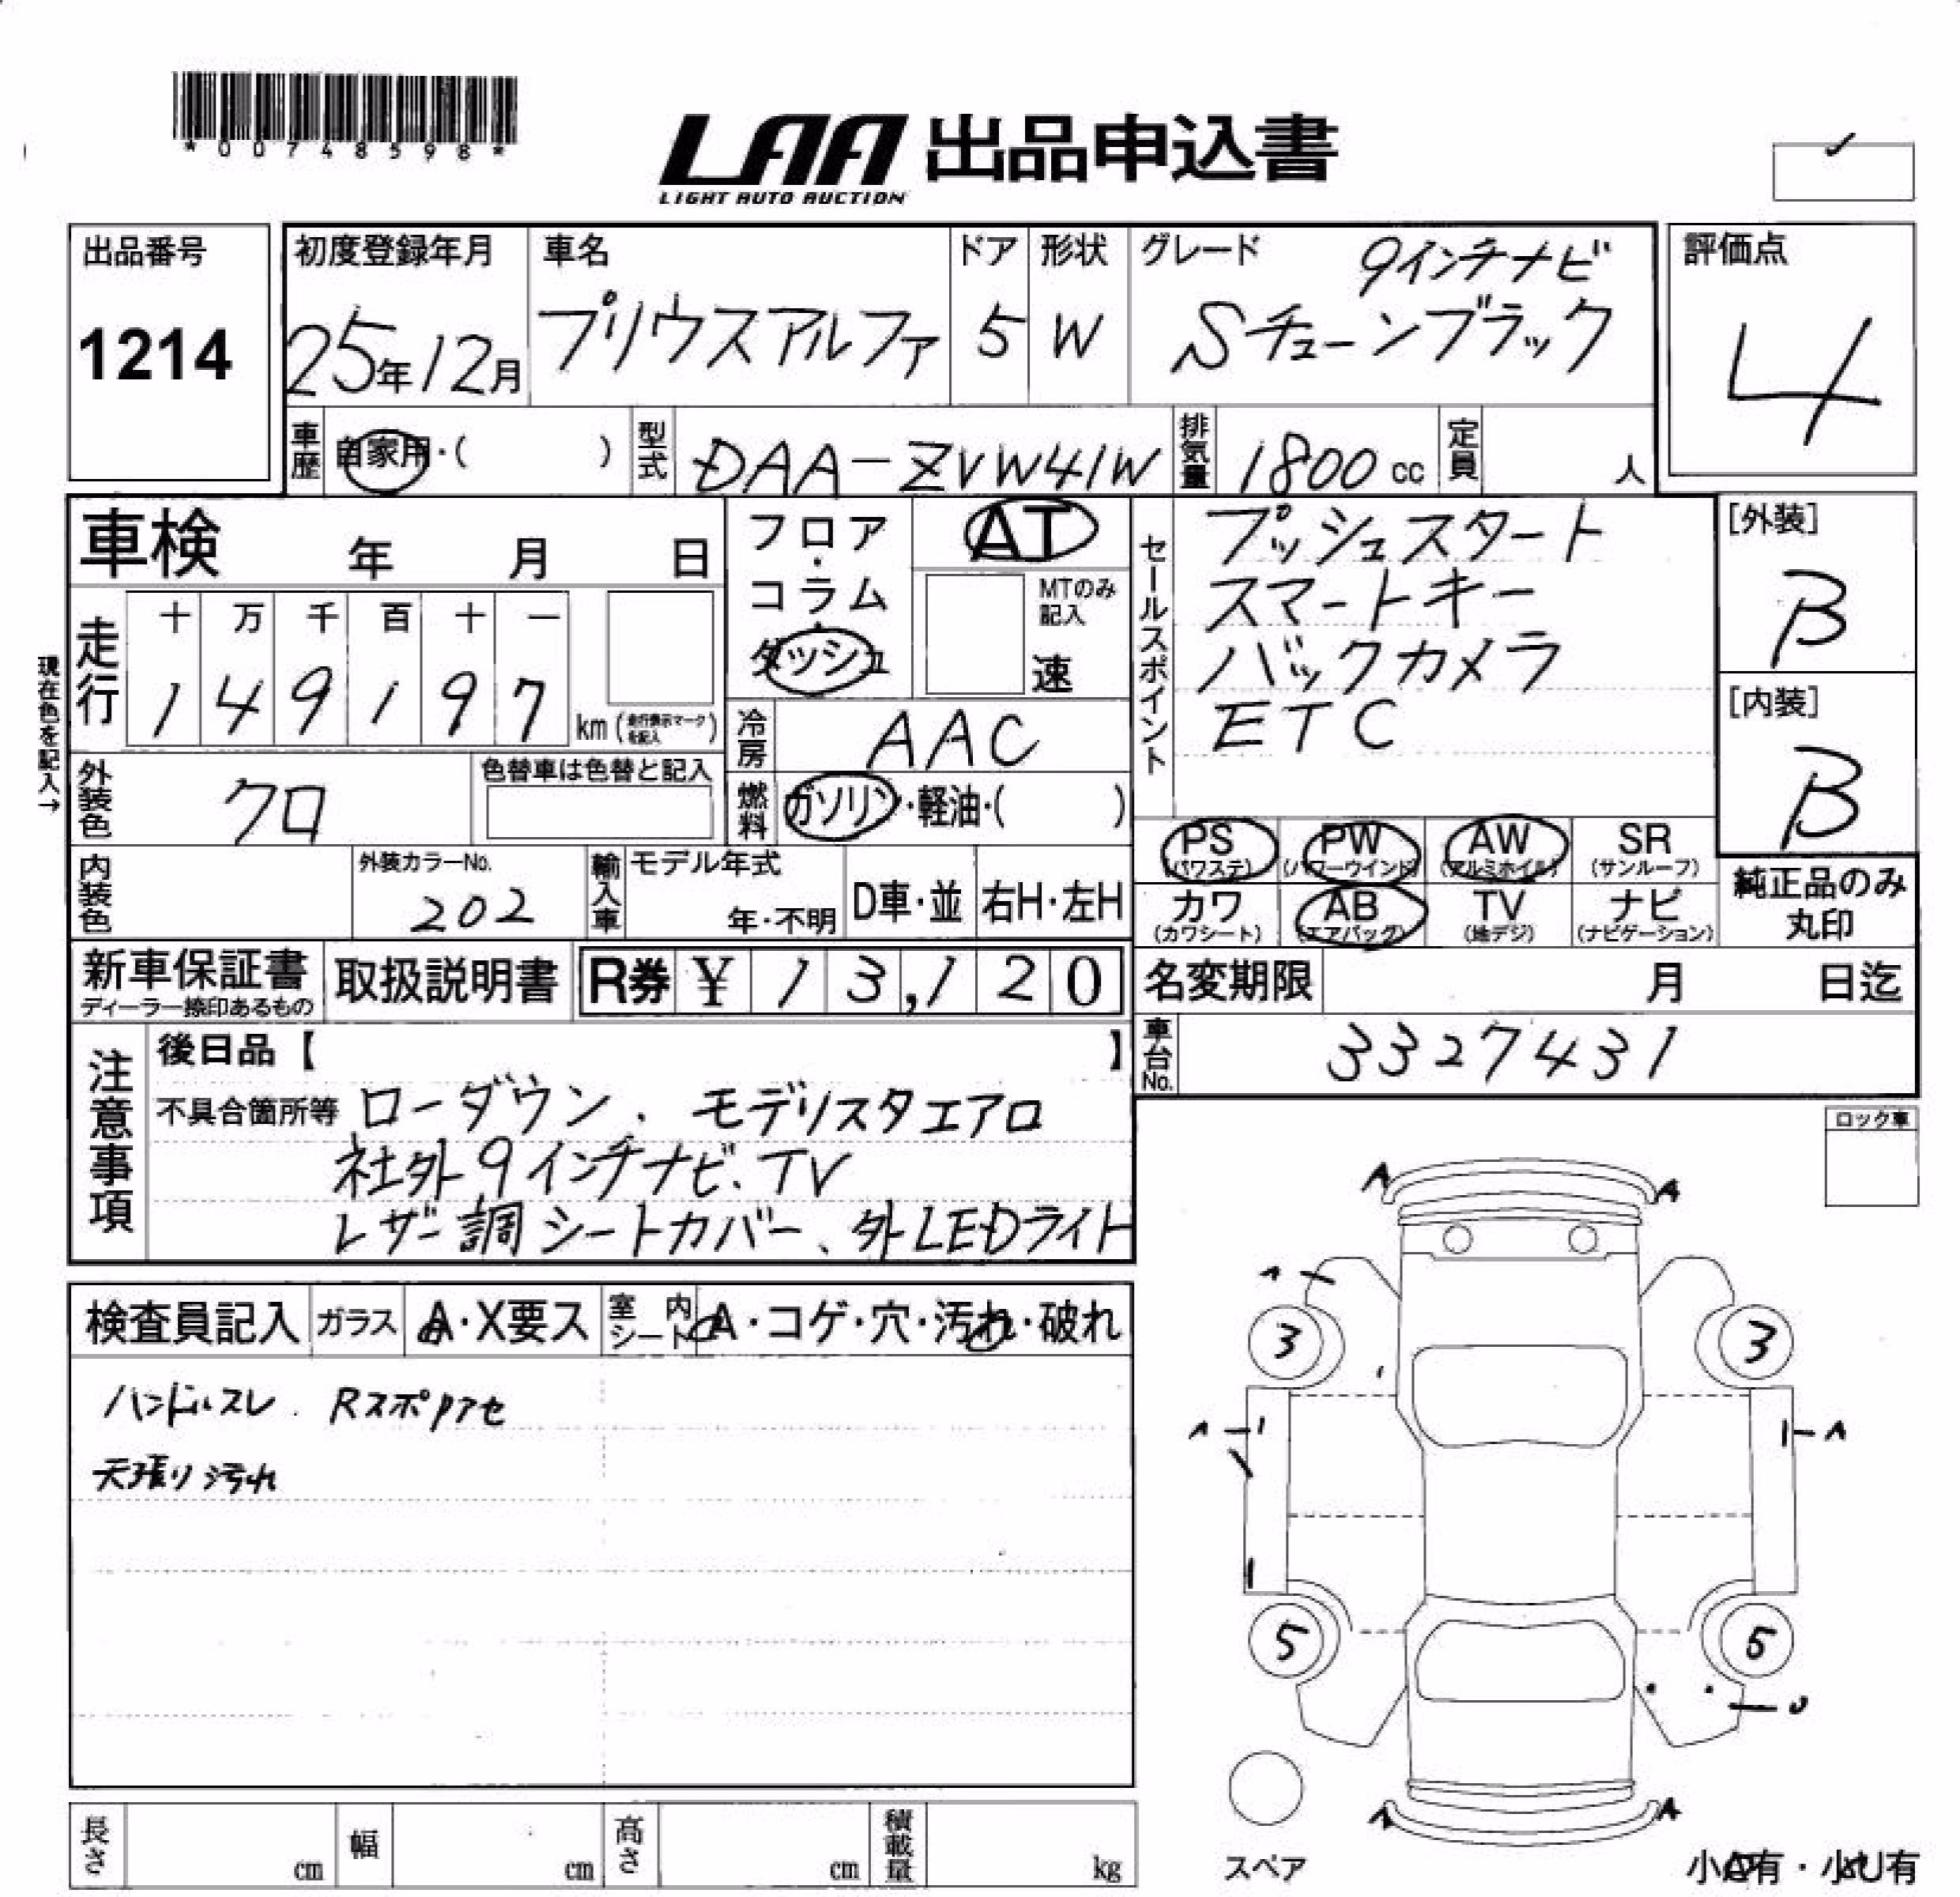 *00748598*
LAA 出品申込書
LIGHT AUTO AUCTION
出品番号
1214
初度登録年月
25年12月
車名
プリウスアルファ
ドア
5
形状
W
グレード
9インチナビ
Sチューンブラック
評価点
4
車歴
自家用・( )
型式
DAA-ZVW41W
排気量
1800 cc
定員
人
車検 年 月 日
フロア・コラム・ダッシュ
AT
MTのみ記入
速
現在色を記入→
走行
十 万 千 百 十 一
1 4 9 1 9 7
km (走行表示マークを記入)
冷房
AAC
外装色
クロ
色替車は色替と記入
燃料
ガソリン・軽油・( )
内装色
外装カラーNo.
202
輸入車
モデル年式
年・不明
D車・並
右H・左H
セールスポイント
プッシュスタート
スマートキー
バックカメラ
ETC
[外装]
B
[内装]
B
PS (パワステ)
PW (パワーウインド)
AW (アルミホイル)
SR (サンルーフ)
カワ (カワシート)
AB (エアバッグ)
TV (地デジ)
ナビ (ナビゲーション)
純正品のみ
丸印
新車保証書
ディーラー捺印あるもの
取扱説明書
R券 ¥ 13,120
名変期限 月 日迄
車台No.
3327431
注意事項
後日品【 】
不具合箇所等 ローダウン、モデリスタエアロ
社外9インチナビ、TV
レザー調シートカバー、外LEDライト
ロック車
検査員記入
ガラス
A・X要ス
室内シート
A・コゲ・穴・汚れ・破れ
ハンドルスレ、Rスポアセ
天張り汚れ
A A
A
3 3
A A
5 5
U
A A
スペア
小A有・小U有
長さ cm
幅 cm
高さ cm
積載量 kg